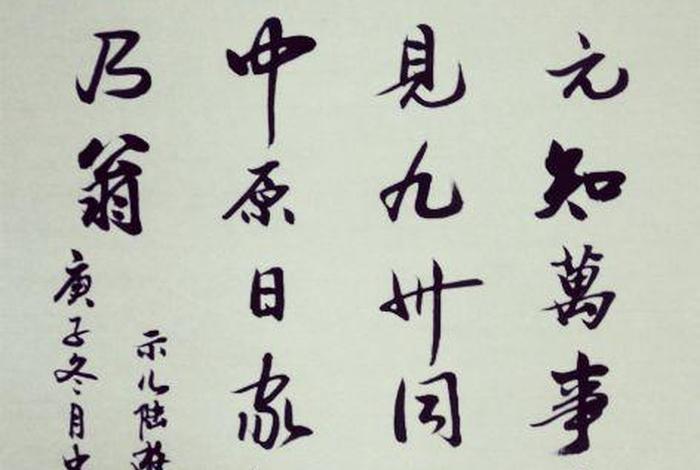 元知萬事
見九州同
中原日家
乃翁
示儿陆游
庚子冬月